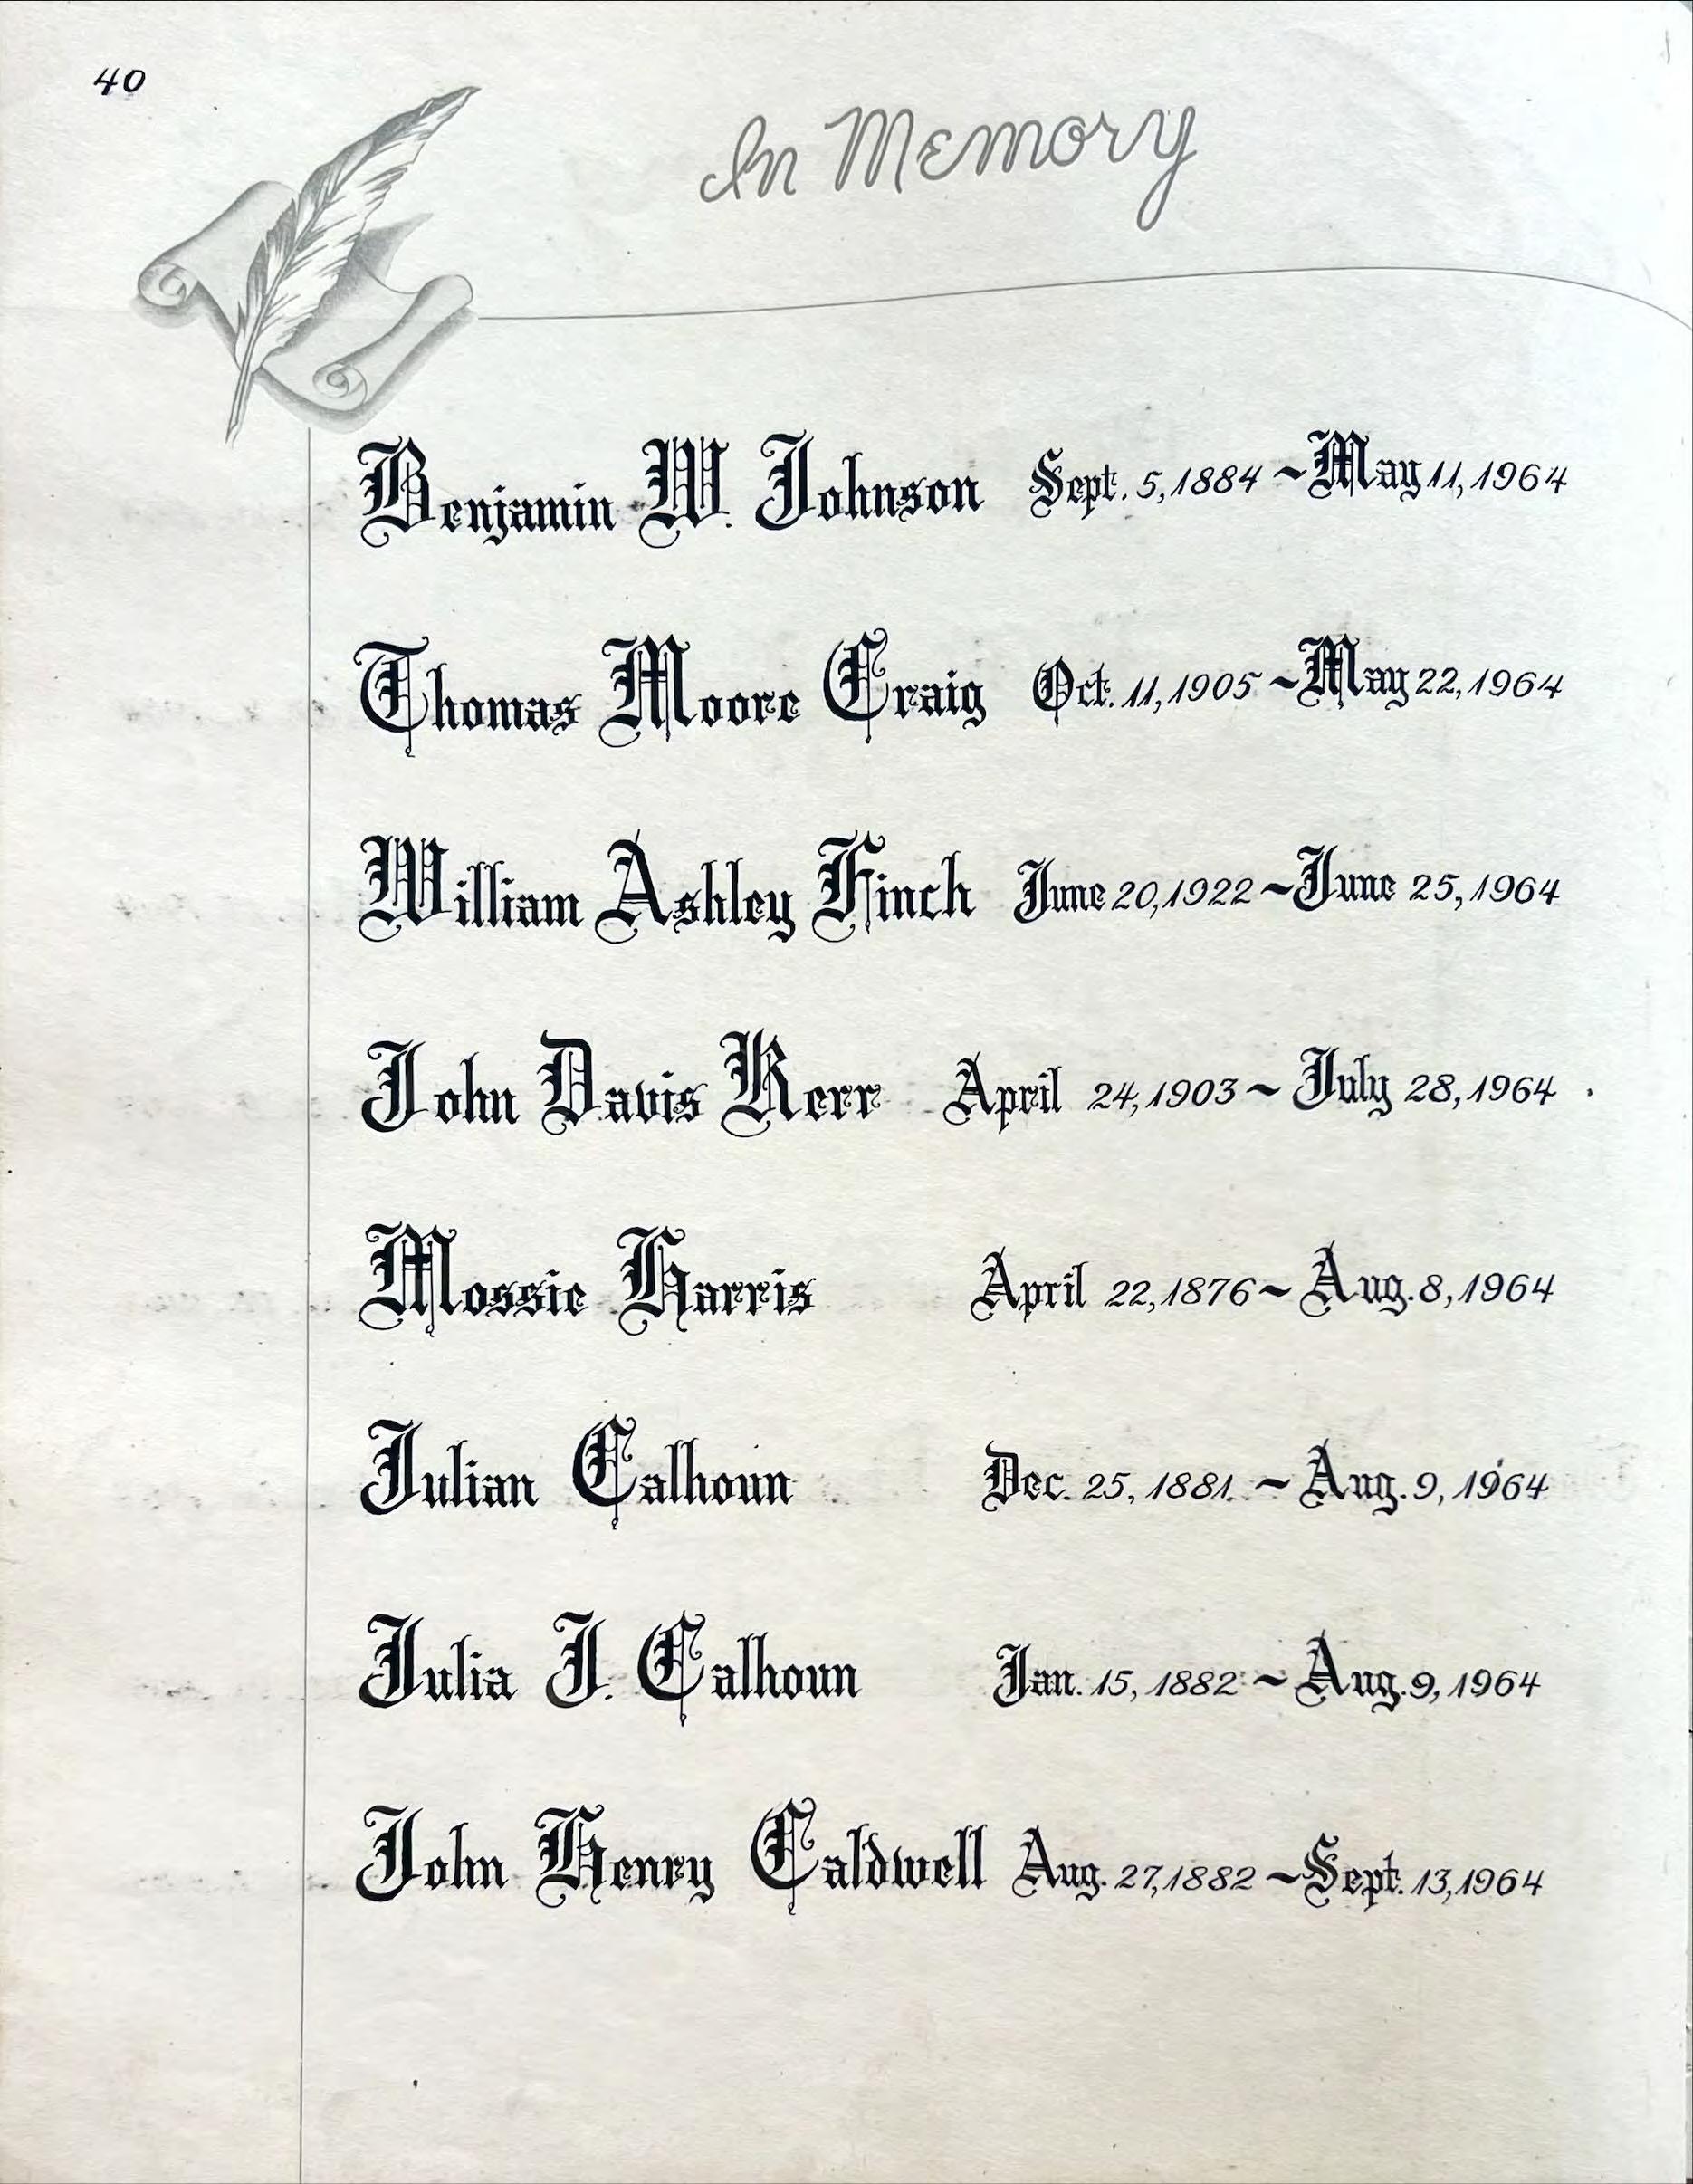 40
In Memory
Benjamin W. Johnson Sept. 5, 1884 ~ May 11, 1964
Thomas Moore Craig Oct. 11, 1905 ~ May 22, 1964
William Ashley Finch June 20, 1922 ~ June 25, 1964
John Davis Kerr April 24, 1903 ~ July 28, 1964
Mossie Harris April 22, 1876 ~ Aug. 8, 1964
Julian Calhoun Dec. 25, 1881 ~ Aug. 9, 1964
Julia J. Calhoun Jan. 15, 1882 ~ Aug. 9, 1964
John Henry Caldwell Aug. 27, 1882 ~ Sept. 13, 1964